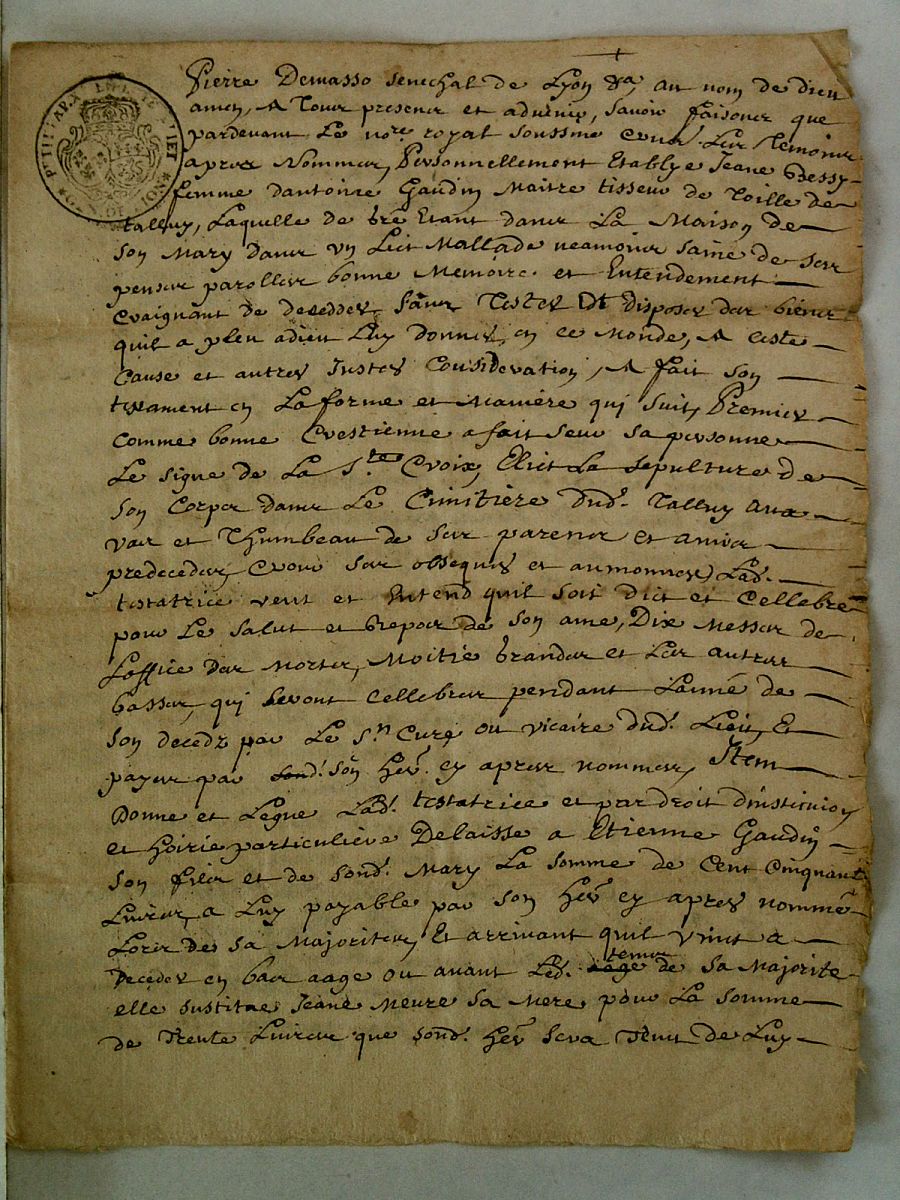 Pierre Demasso senechal de Lyon &a, au nom de dieu
amen, A Tour presener et advenir, Savoir faisoner que
pardevant Le nore royal soussme et Ler Temoinr
aprer Nommer, Personnellement Establye Jeane Bessy
femme dantoine Gaudin Maitre tisseur de Toille de
talluy, Laquelle de gré Etant danr La Maison de
Son Mary danr vn Lict Mallade neamoinr saine de ser
penser paroller bonne Memoire et Entendement
Craignant de deceder sanr Tester Et disposer der bienr
quil a pleu adieu Luy donner, en ce Monde, A ceste
Cause et autres Justes Consideration, A fait son
testament en La forme et Maniere qui suit, Premier
Comme bonne Crestienne a fait seur sa personne
Le signe de La Ste Croix, Elict La sepulture de
Son Corpr danr Le Cimitière dud. Talluy aux
vas et Thumbeau de Ser parenr et amir
predeceder, pour Ser obseques et aumonner, Lad.
testatrice veut et Entend quil soit dict et Cellebré
pour Le salut et Repor de Son ame, Dix Messer de
Loffice der Morter, Moitié grander et Ler autrer
basser, qui seront Cellebrer pendant Lanné de
Son decedz par Le Sr. Curé ou vicaire dud. Lieu, Et
payer par Sond. Son Her. cy aprer nommer, Item
Donne et Legue Lad. testatrice et par droit dinstituion
et hoirie particulière Delaisse a Etienne Gaudin
Son filz et de Sond. Mary La Somme de Cent Cinquante
Livrer, a Luy payable par Son Her. cy apres nommé
Lorr de Sa Majoriter, Et arrivant quil vint a
Deceder en bar aage ou avant Led. temr de Sa Majorite
elle Sustitue Jeane Meure Sa Mere pour La Somme
de Trente Livrer que Sond. Her. Sera Tenu de Luy